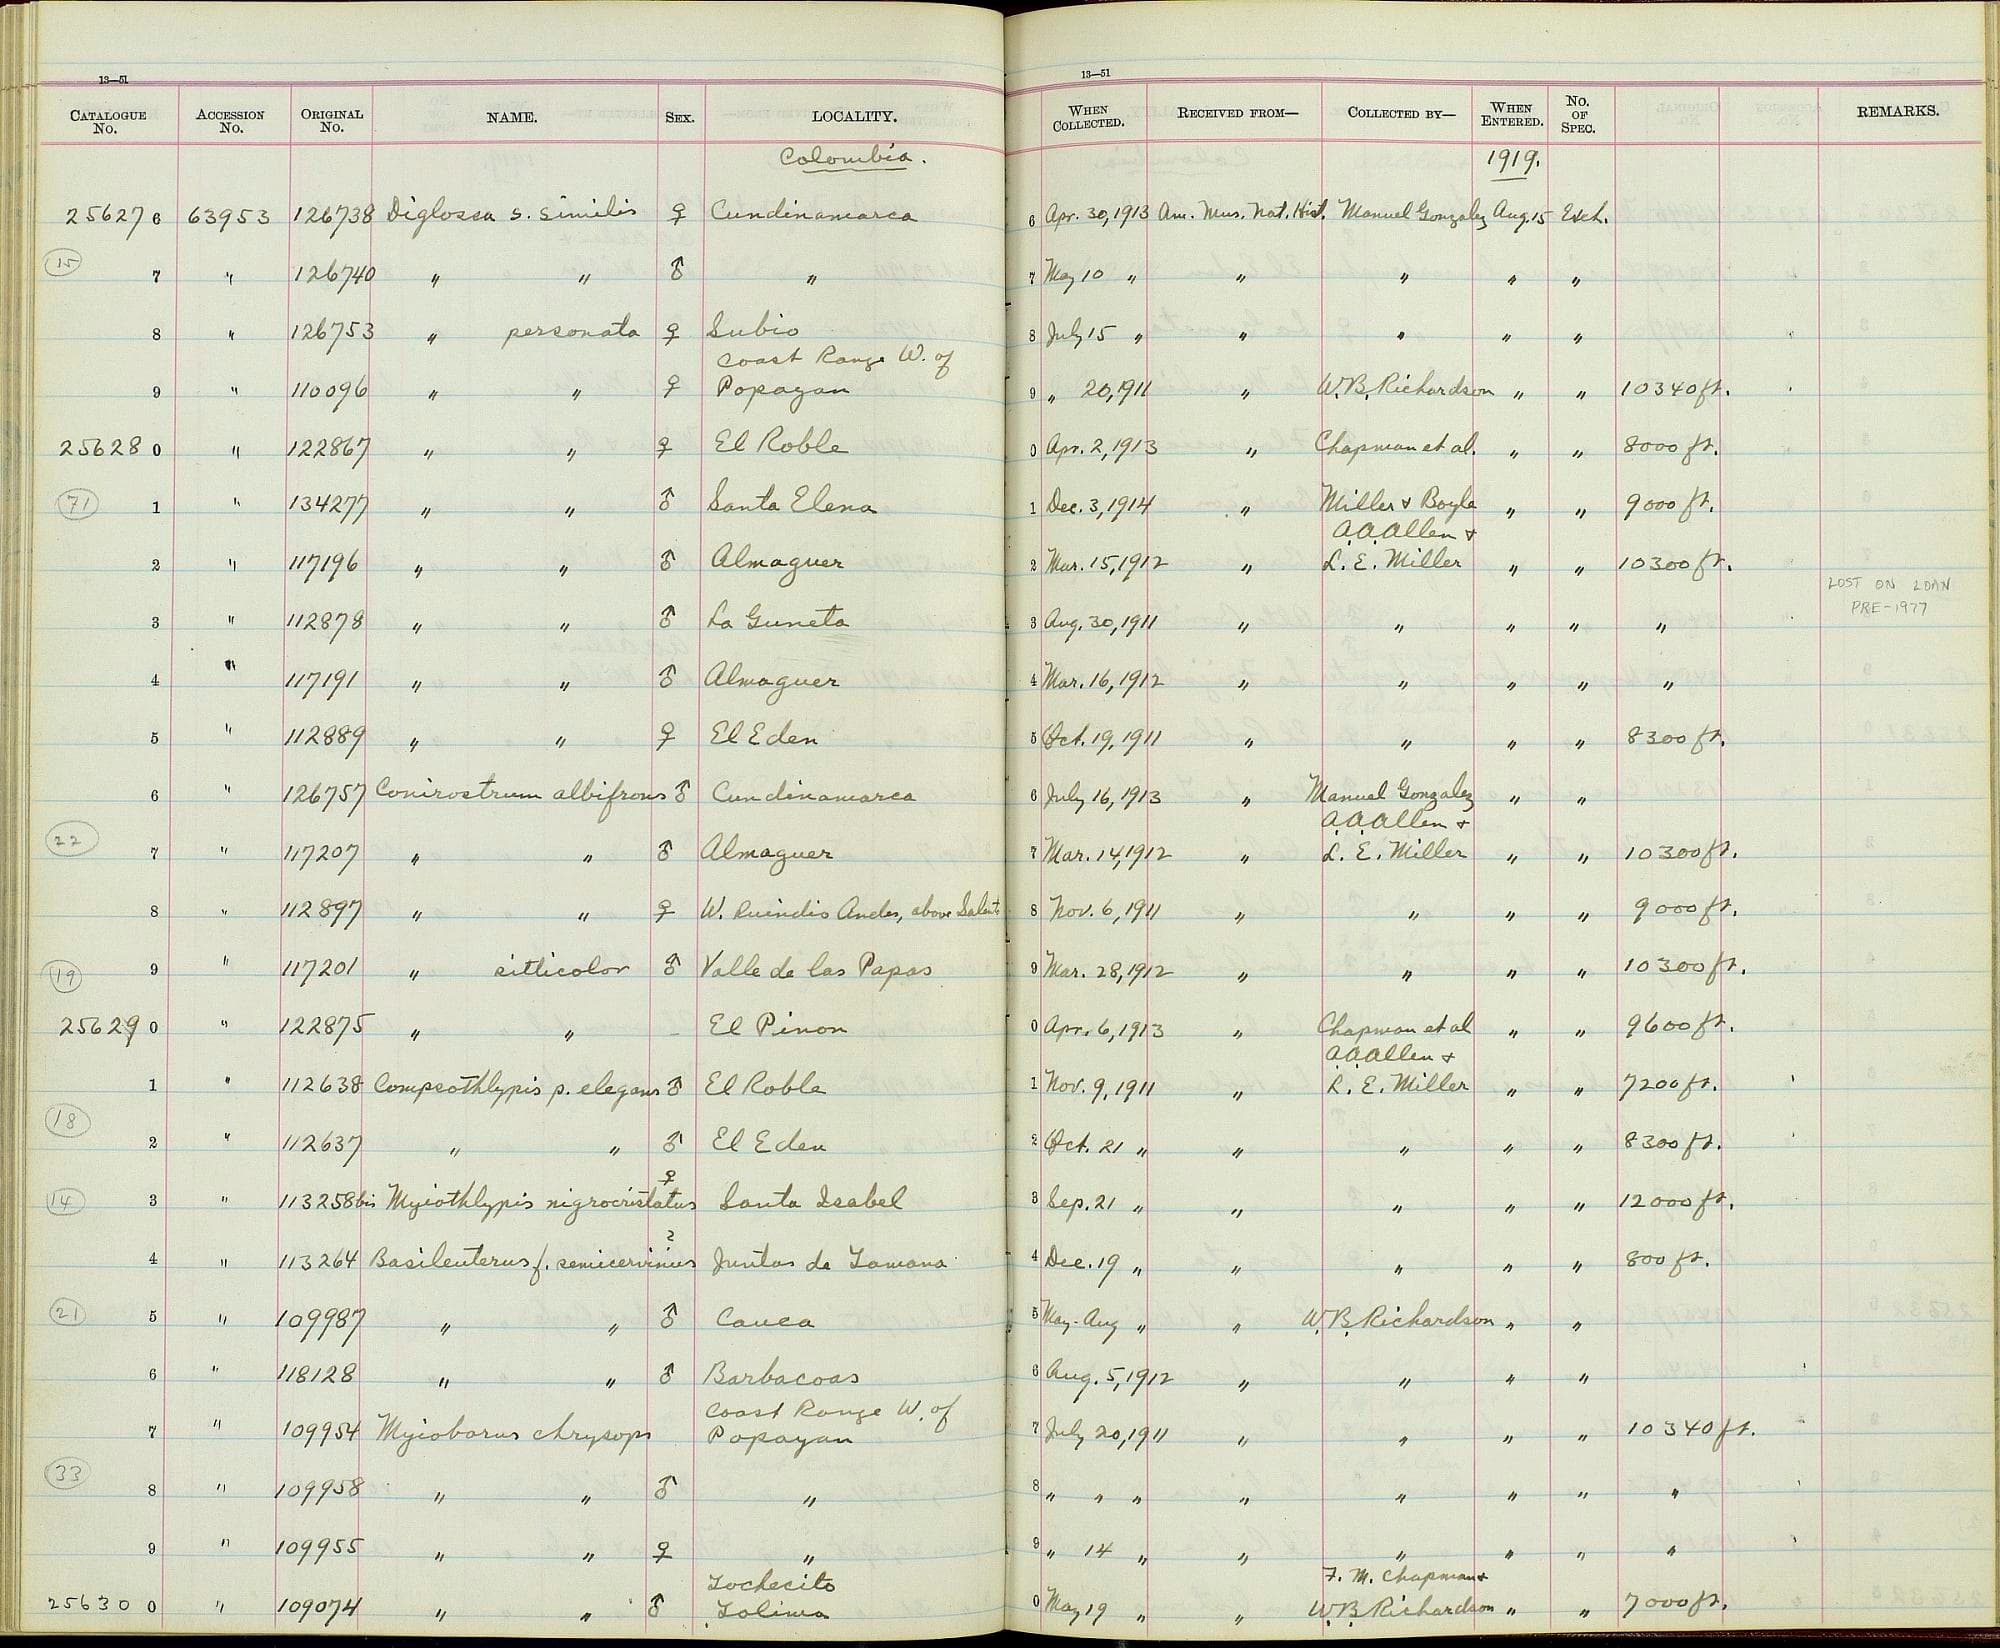 13—51
13—51
CATALOGUE NO. ACCESSION NO. ORIGINAL NO. NAME. SEX. LOCALITY. WHEN COLLECTED. RECEIVED FROM— COLLECTED BY— WHEN ENTERED. NO. OF SPEC. REMARKS.
Colombia. 1919.
25627 6 63953 126738 Diglossa s. similis ♀ Cundinamarca 6 Apr. 30, 1913 Am. Mus. Nat. Hist. Manuel Gonzalez Aug. 15 Exch.
15
7 " 126740 " " ♂ " 7 May 10 " " " " "
8 " 126753 " personata ♀ Subio 8 July 15 " " " " "
Coast Range W. of
9 " 110096 " " ♀ Popayan 9 " 20, 1911 " W. B. Richardson " " 10340 ft.
25628 0 " 122867 " " ♀ El Roble 0 Apr. 2, 1913 " Chapman et al. " " 8000 ft.
71
1 " 134277 " " ♂ Santa Elena 1 Dec. 3, 1914 " Miller & Boyle " " 9000 ft.
A. A. Allen &
2 " 117196 " " ♂ Almaguer 2 Mar. 15, 1912 " L. E. Miller " " 10300 ft.
LOST ON LOAN
PRE-1977
3 " 112878 " " ♂ La Guneta 3 Aug. 30, 1911 " " " " "
4 " 117191 " " ♂ Almaguer 4 Mar. 16, 1912 " " " " "
5 " 112889 " " ♀ El Eden 5 Oct. 19, 1911 " " " " 8300 ft.
6 " 126757 Conirostrum albifrons ♂ Cundinamarca 6 July 16, 1913 " Manuel Gonzalez " "
22
A. A. Allen &
7 " 117207 " " ♂ Almaguer 7 Mar. 14, 1912 " L. E. Miller " " 10300 ft.
8 " 112897 " " ♀ W. Quindio Andes, above Salento 8 Nov. 6, 1911 " " " " 9000 ft.
19
9 " 117201 " sitticolor ♂ Valle de las Papas 9 Mar. 28, 1912 " " " " 10300 ft.
25629 0 " 122875 " " - El Pinon 0 Apr. 6, 1913 " Chapman et al " " 9600 ft.
A. A. Allen &
1 " 112638 Compsothlypis p. elegans ♂ El Roble 1 Nov. 9, 1911 " L. E. Miller " " 7200 ft.
18
2 " 112637 " " ♂ El Eden 2 Oct. 21 " " " " " 8300 ft.
14
3 " 113258bis Myiothlypis nigrocristatus ♀ Santa Isabel 3 Sep. 21 " " " " " 12000 ft.
4 " 113264 Basileuterus f. semicervinus ? Juntas de Tamana 4 Dec. 19 " " " " " 800 ft.
21
5 " 109987 " " ♂ Cauca 5 May-Aug " " W. B. Richardson " "
6 " 118128 " " ♂ Barbacoas 6 Aug. 5, 1912 " " " "
Coast Range W. of
7 " 109954 Myioborus chrysops Popayan 7 July 20, 1911 " " " " 10340 ft.
33
8 " 109958 " " ♂ " 8 " " " " " " " "
9 " 109955 " " ♀ " 9 " 14 " " " " " "
Tochecito F. M. Chapman &
25630 0 " 109074 " " ♂ Tolima 0 May 19 " " W. B. Richardson " " 7000 ft.